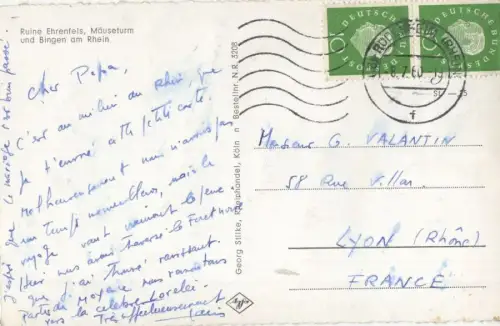 Ruine Ehrenfels, Mäuseturm
und Bingen am Rhein
Cher Papa,
C'est au milieu du Rhin, que
je t'envoie cette petite carte.
Malheureusement nous n'avons pas
un temps merveilleux, mais le
voyage vaut vraiment la peine
Hier nous avons traversé la Forêt noire
que j'ai trouvé ravissant.
Partis de nous
vers la célèbre Lorelei
Très affectueusement
J'espère que le mariage s'est bien passé.
Georg Stilke, Köln n Bestellnr. N.R. 3208
Agfa
DEUTSCHE BUNDESPOST
10
DEUTSCHE BUNDESPOST
10
Monsieur G. VALANTIN
58 Rue Villon
LYON (Rhône)
FRANCE